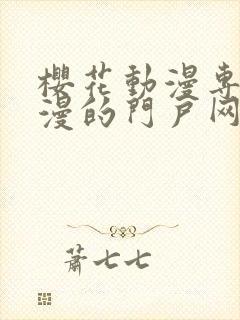 櫻花動漫專
漫的門戶网
蕭七七